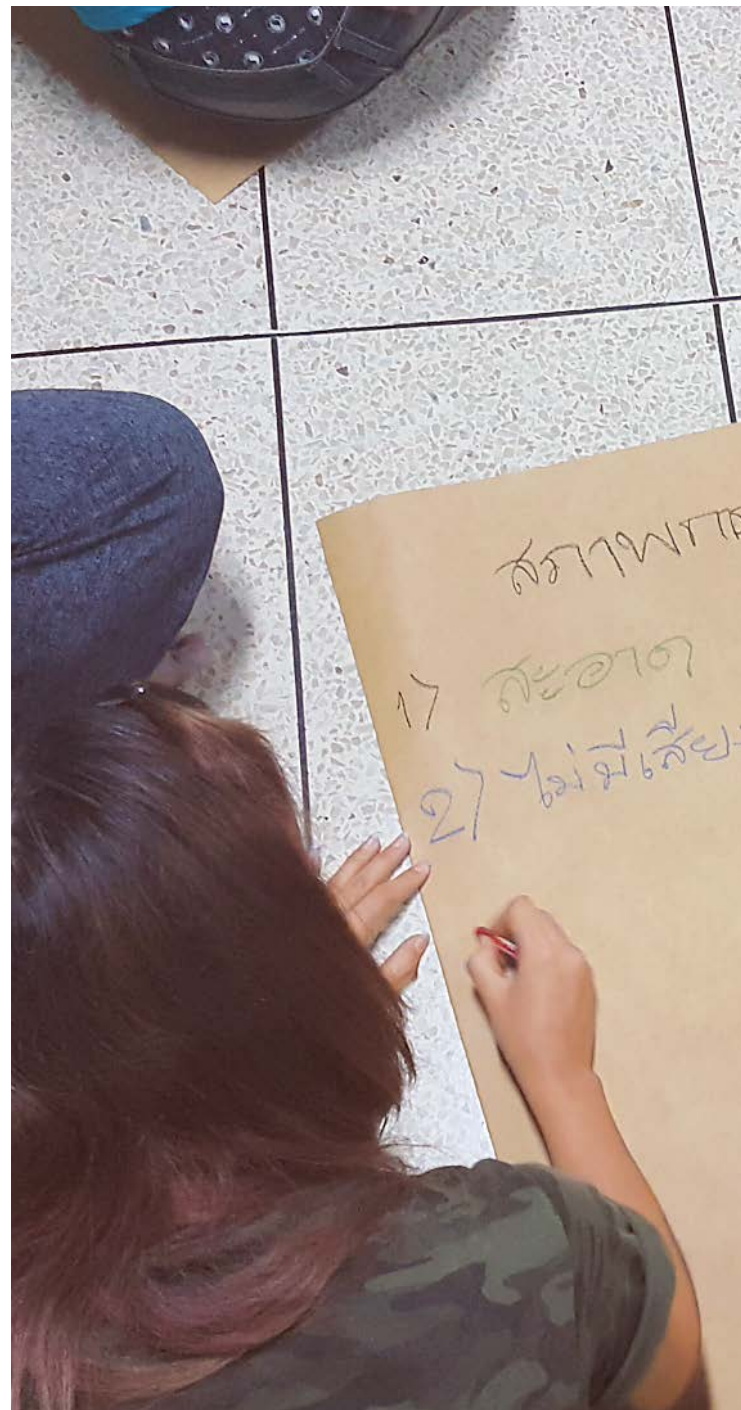 สภาพการ
1) สะอาด
2) ไม่มีเสียง